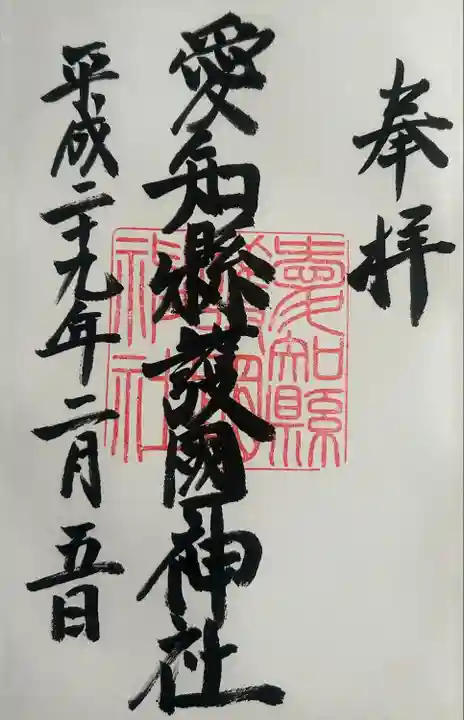 奉拝
愛知縣護國神社
愛知縣
護國
神社
平成二十九年二月五日